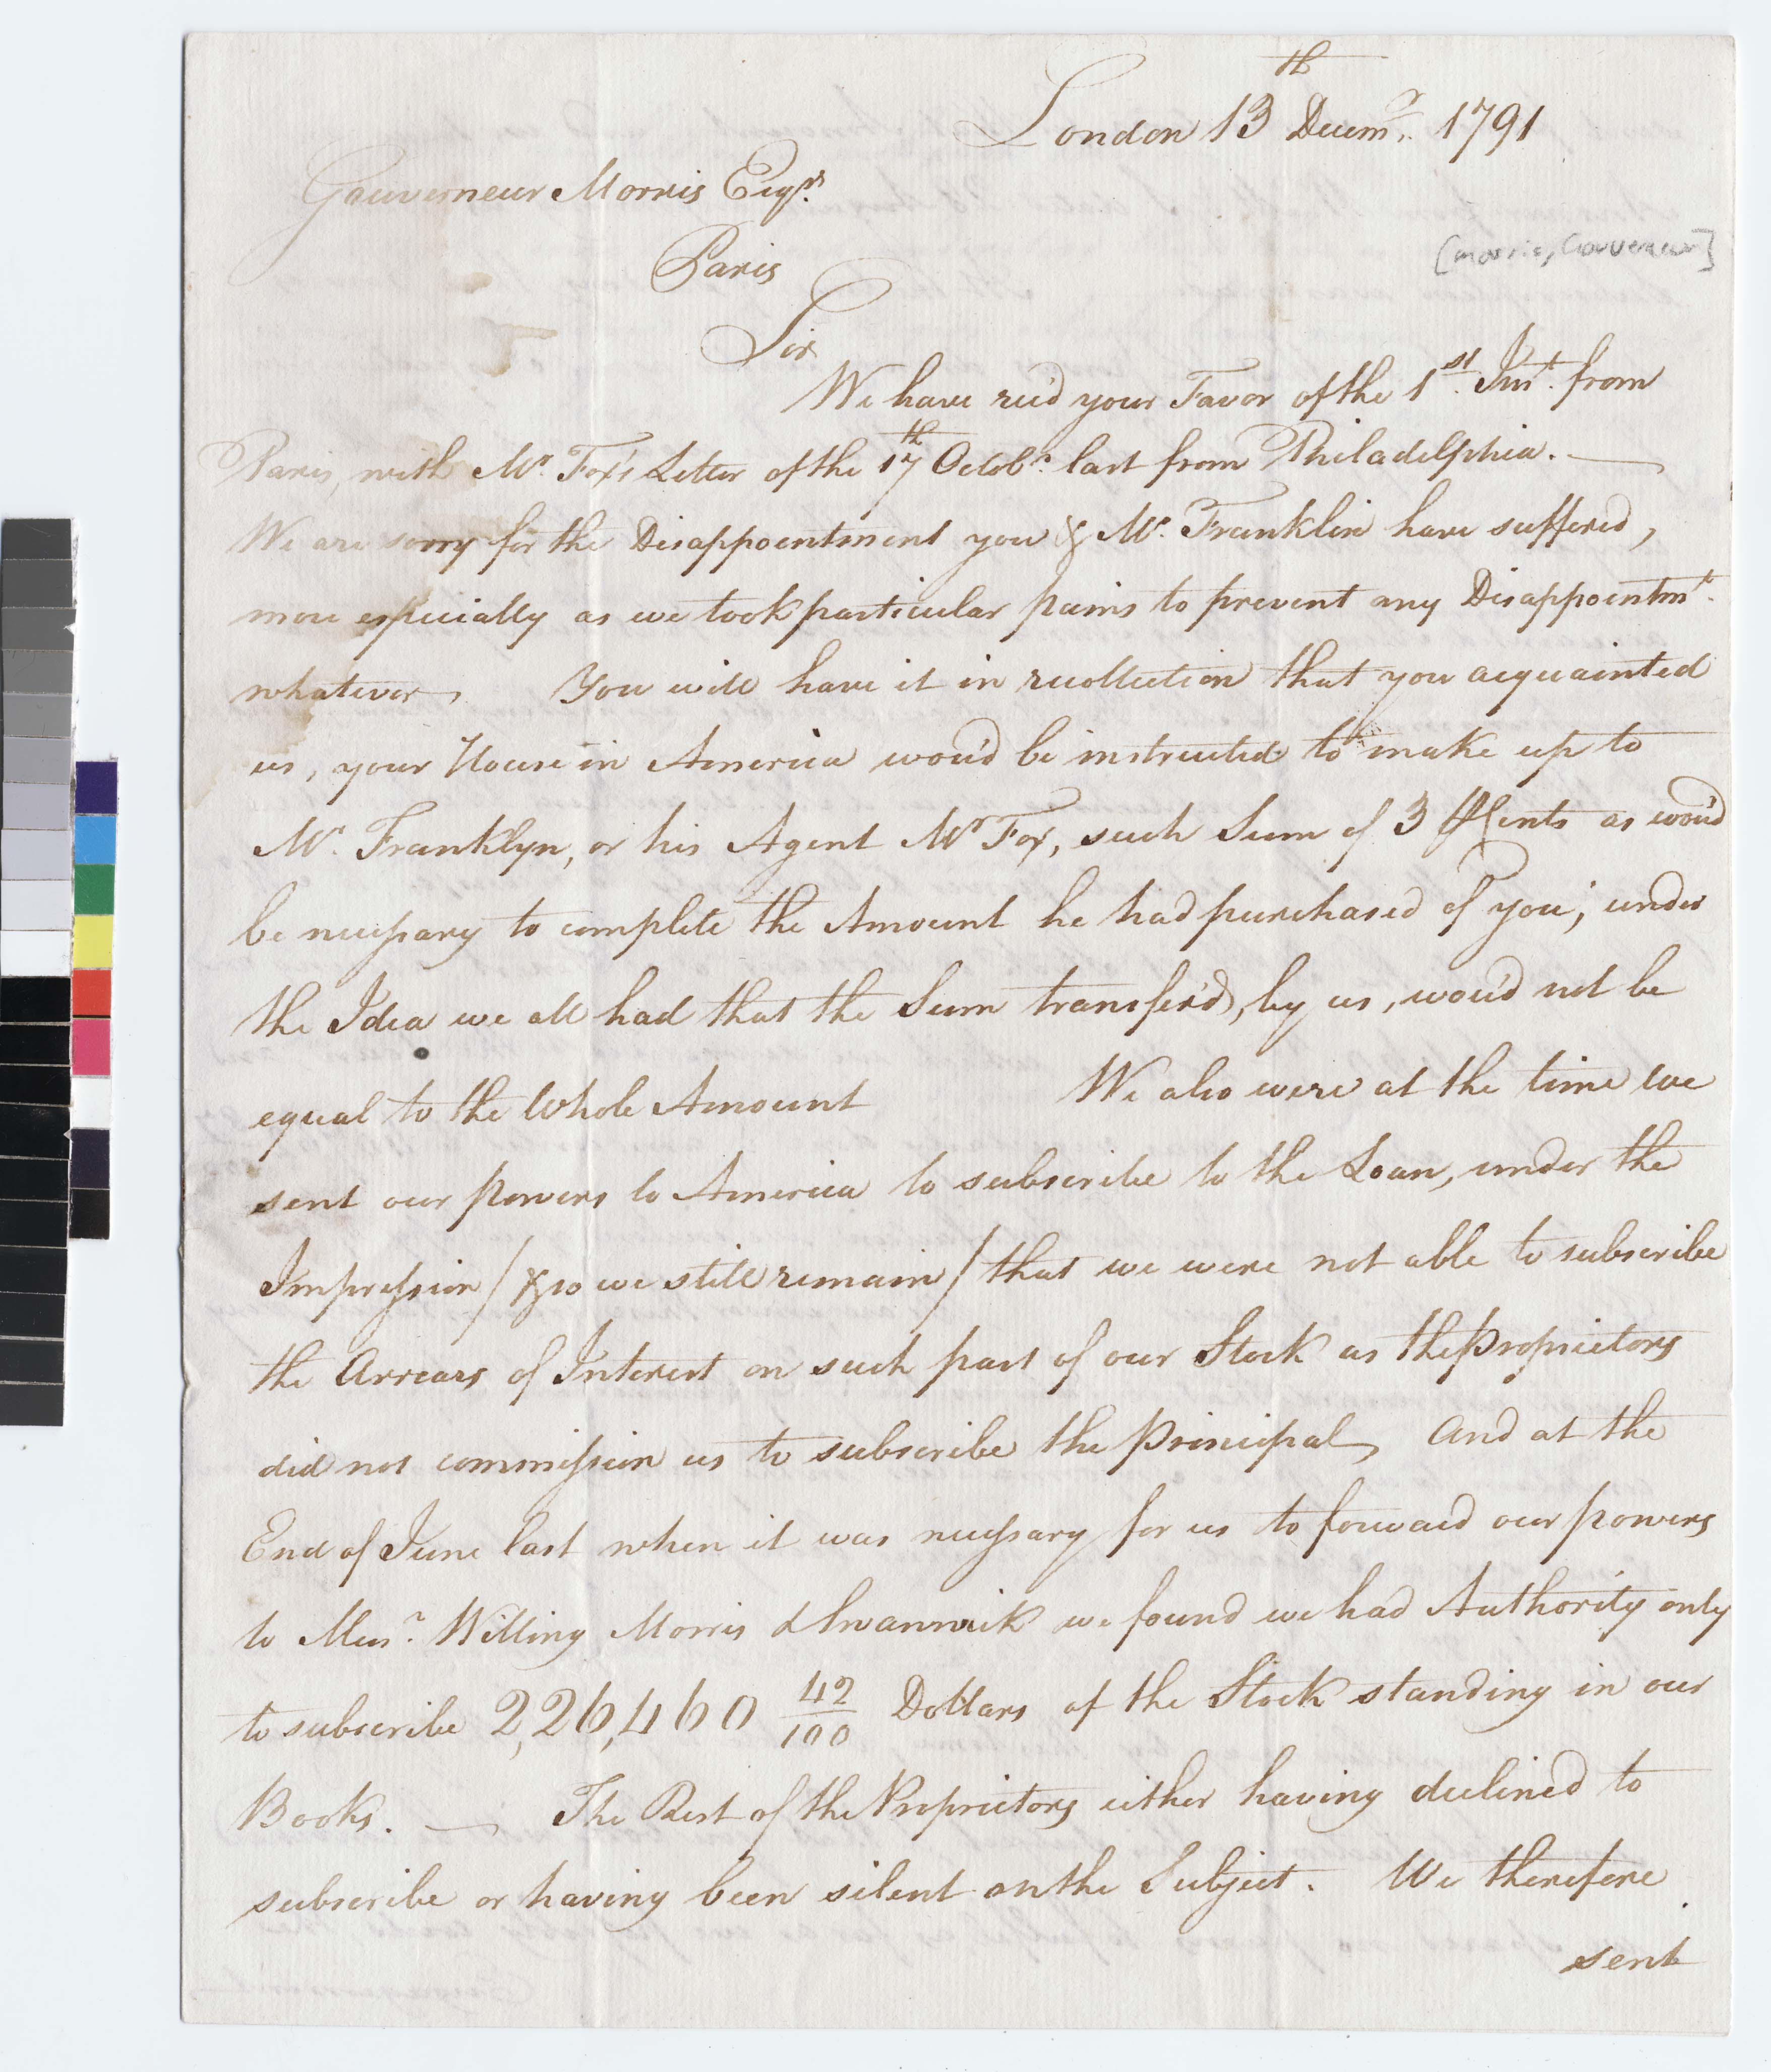 London 13th Decemr. 1791
Gouverneur Morris Esqr.
Paris
[Morris, Gouverneur]
Sir
We have rec'd your Favor of the 1st. Inst. from
Paris, with Mr. Fox's Letter of the 17th Octobr. last from Philadelphia. —
We are sorry for the Disappointment you & Mr. Franklin have suffered,
more especially as we took particular pains to prevent any Disappointmt.
whatever, You will have it in recollection that you acquainted
us, your House in America wou'd be instructed to make up to
Mr. Franklyn, or his Agent Mr Fox, such Sum of 3 Ct. as wou'd
be necessary to complete the Amount he had purchased of you; under
the Idea we all had that the Sum transfer'd, by us, wou'd not be
equal to the Whole Amount We also were at the time we
sent our powers to America to subscribe to the Loan, under the
Impression / & so we still remain / that we were not able to subscribe
the Arrears of Interest on such part of our Stock as the Proprietors
did not commission us to subscribe the Principal, And at the
End of June last when it was necessary for us to forward our powers
to Messr. Willing Morris & Swanwick we found we had Authority only
to subscribe 2,226,460 42/100 Dollars of the Stock standing in our
Books. — The Rest of the Proprietors either having declined to
subscribe or having been silent on the Subject. We therefore
sent